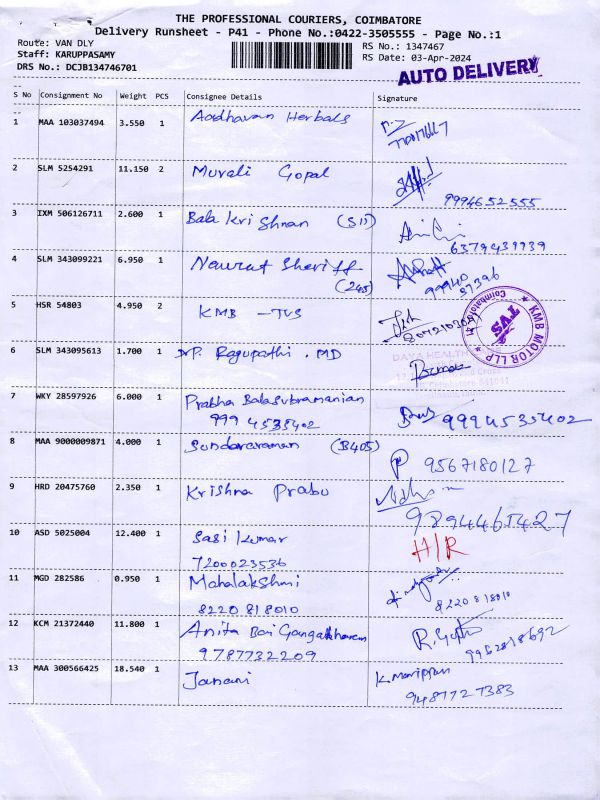 THE PROFESSIONAL COURIERS, COIMBATORE
Delivery Runsheet - P41 - Phone No.:0422-3505555 - Page No.:1
Route: VAN DLY
RS No.: 1347467
Staff: KARUPPASAMY
RS Date: 03-Apr-2024
DRS No.: DCJB134746701
AUTO DELIVERY
S No Consignment No Weight PCS Consignee Details Signature
1 MAA 103037494 3.550 1 Aadhavan Herbals
2 SLM 5254291 11.150 2 Murali Gopal
9994652555
3 IXM 506126711 2.600 1 Bala Krishnan (S11)
6379439939
4 SLM 343099221 6.950 1 Naurat Sheriff
(245) 99940
87396
5 HSR 54803 4.950 2 KMB - TVS
KMB MOTOR LLP
TVS
6 SLM 343095613 1.700 1 Dr. P. Ragupathi . MD
DAYA HEALTH
7 WKY 28597926 6.000 1 Prabha Balasubramanian
999 4535402 9994535402
8 MAA 9000009871 4.000 1 Sundararaman (B405)
9567180127
9 HRD 20475760 2.350 1 Krishna Prabu
9894465427
10 ASD 5025004 12.400 1 Sasi Kumar H/R
7200023536
11 MGD 282586 0.950 1 Mahalakshmi
8220 818010 8220818010
12 KCM 21372440 11.800 1 Anita Bai Gangatharan
9787732209 9952818692
13 MAA 300566425 18.540 1 Janani K. Marippan
9487727383